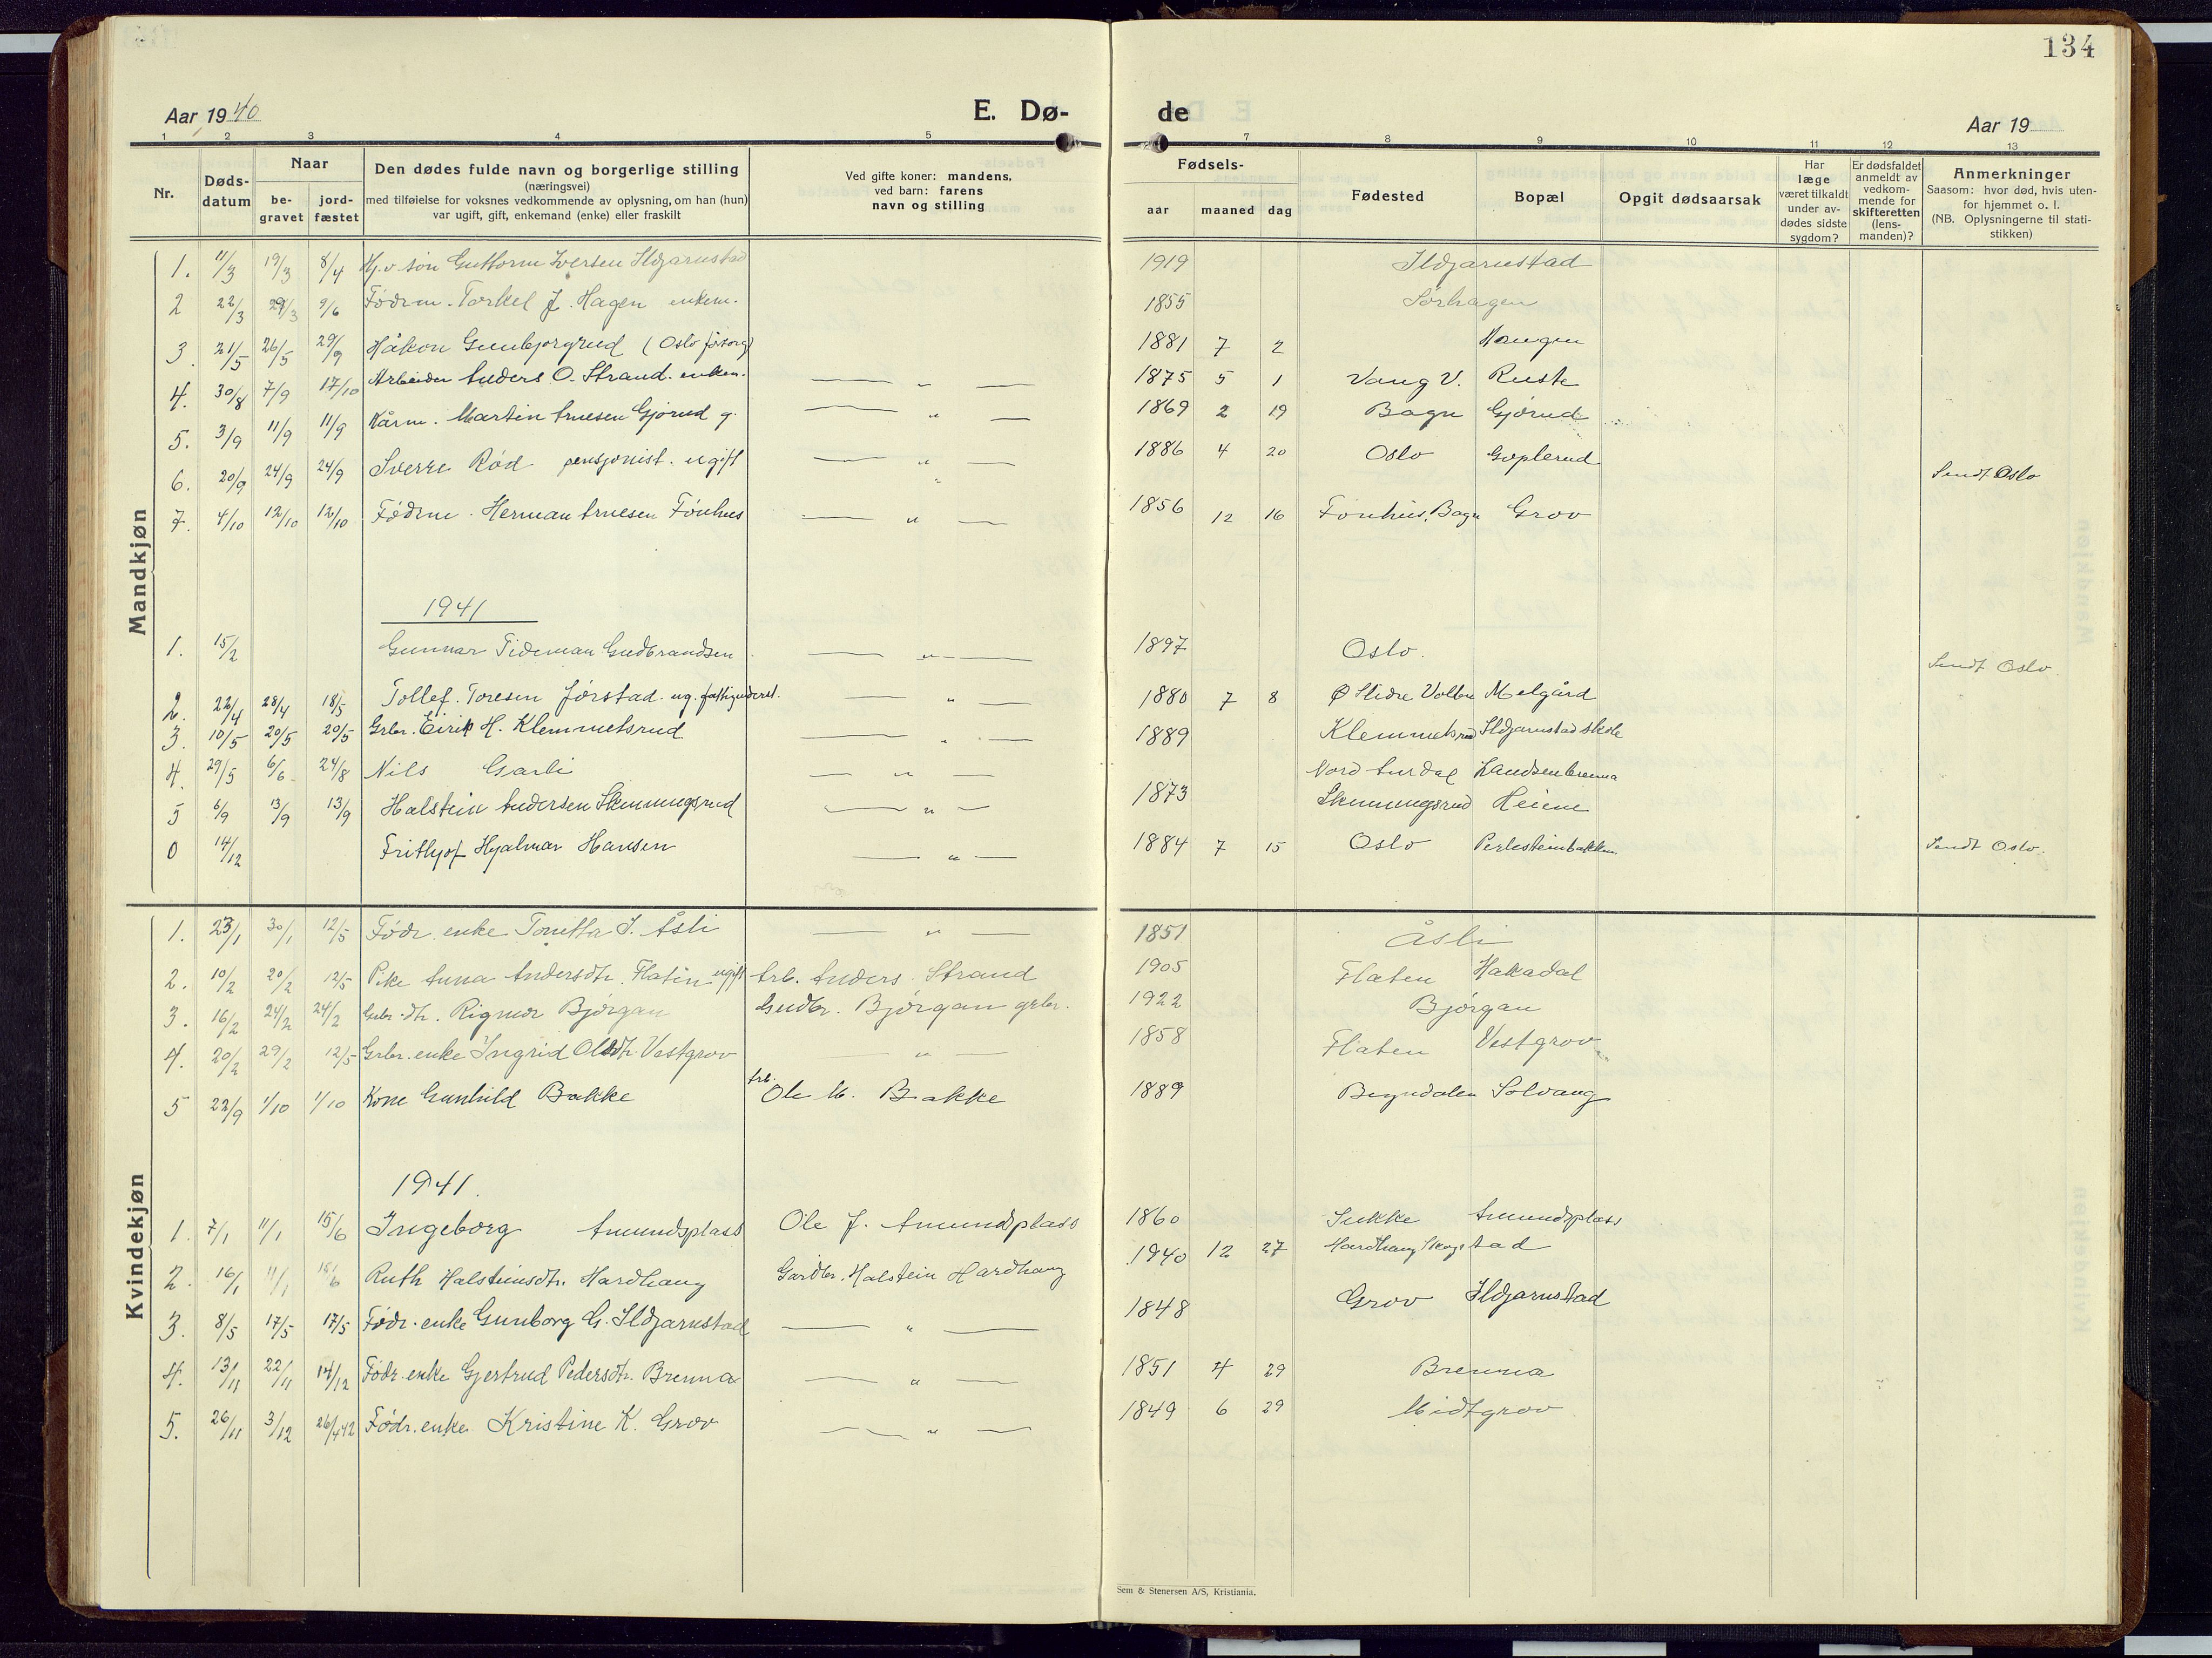 134
Aar 1940 E. Dø- de Aar 19
1 2 3 4 5 7 8 9 10 11 12 13
Nr. Døds-datum Naar be-gravet jord-fæstet Den dødes fulde navn og borgerlige stilling (næringsvei) med tilføielse for voksnes vedkommende av oplysning, om han (hun) var ugift, gift, enkemand (enke) eller fraskilt Ved gifte koner: mandens, ved barn: farens navn og stilling Fødsels- aar maaned dag Fødested Bopæl Opgit dødsaarsak Har læge været tilkaldt under av-dødes sidste sygdom? Er dødsfaldet anmeldt av vedkom-mende for skifteretten (lens-manden)? Anmerkninger Saasom: hvor død, hvis uten-for hjemmet o. l. (NB. Oplysningerne til stati-stikken)
Mandkjøn
1. 11/3 19/3 8/4 Hj.v. søn Guttorm Iversen Ildjarnstad 1919 Ildjarnstad
2 22/3 29/3 9/6 Fødrm. Torkel J. Hagen enkem. 1855 Sørhagen
3. 21/5 26/5 29/9 Håkon Gunbjørgrud (Oslo forsorg) 1881 7 2 Haugen
4. 30/8 7/9 17/10 Arbeider Anders O. Strand. enkem. — " — 1875 5 1 Vang V. Ruste
5. 3/9 11/9 11/9 Kårm. Martin Arnesen Gjørud g. — " — 1869 2 19 Bagn Gjørud
6. 20/9 24/9 24/9 Sverre Rød pensjonist. ugift — " — 1886 4 20 Oslo Goplerud Sendt Oslo
7. 4/10 12/10 12/10 Fødrm. Herman Arnesen Fønhus — " — 1856 12 16 Fønhus, Bagn Grov
1941
1. 15/2 Gunnar Tideman Gudbrandsen — " — 1897 Oslo. Sendt Oslo
2. 22/4 28/4 18/5 Tollef. Toresen Jørstad. ug. fattigunderst. — " — 1880 7 8 Ø Slidre Volbu Melgård
3. 10/5 20/5 20/5 Grbr. Eirik H. Klemmetsrud — " — 1889 Klemmetsrud Ildjarnstad skole
4. 29/5 6/6 24/8 Nils Garli — " — Nord Aurdal Randsenbrenna
5 6/9 13/9 13/9 Halstein Andersen Skinningsrud — " — 1873 Skinningsrud Heiene
0 14/12 Frithjof Hjalmar Hansen — " — 1884 7 15 Oslo Perlesteinbakken Sendt Oslo.
Kvindekjøn
1. 23/1 30/1 12/5 Fødr. enke Tonetta I. Åsli — " — 1851 Åsli
2. 10/2 20/2 12/5 Pike Anna Andersdtr. Flaten ugift Arb. Anders Strand 1905 Flaten Hakadal
3. 16/2 24/2 24/2 Grbr. dtr. Rigmor Bjørgan Gudbr. Bjørgan grbr. 1922 Bjørgan
4. 20/2 29/2 12/5 Grbr. enke Ingrid Olsdtr. Vestgrov — " — 1858 Flaten Vestgrov
5 22/9 1/10 1/10 Kone Gunhild Bakke Arb. Ole M. Bakke 1889 Begndalen Solvang
1941.
1. 7/1 11/1 15/6 Ingeborg Amundsplass Ole J. Amundsplass 1860 Sukke Amundsplass
2. 16/1 11/1 15/6 Ruth Halsteinsdtr. Hardhaug Gardbr. Halstein Hardhaug 1940 12 27 Hardhaug Skogstad
3. 8/5 17/5 17/5 Fødr. enke Gunborg G. Ildjarnstad — " — 1848 Grov Ildjarnstad
4. 13/11 22/11 14/12 Fødr. enke Gjertrud Pedersdtr. Brenna — " — 1851 4 29 Brenna
5. 26/11 3/12 26/4 42 Fødr. enke Kristine K. Grov — " — 1849 6 29 Midtgrov
Sem & Stenersen A/S, Kristiania.